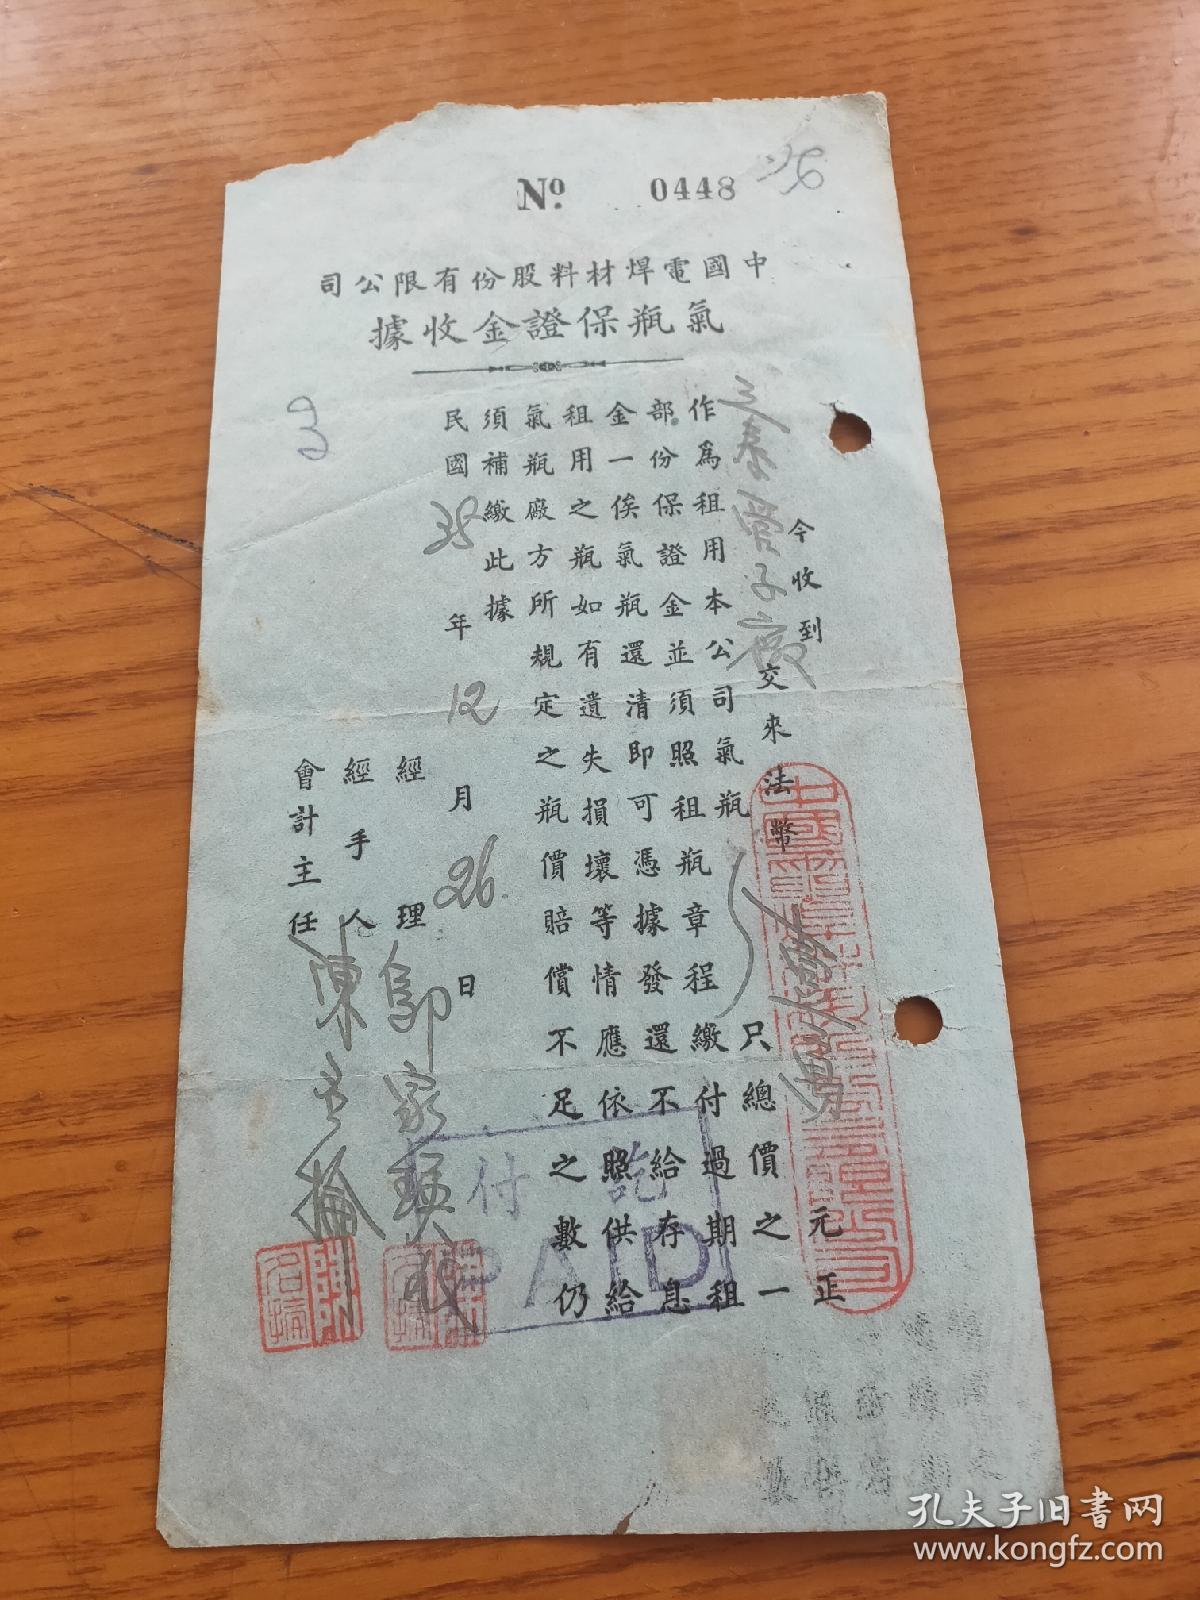 No. 0448
中國電焊材料股份有限公司
氣瓶保證金收據
今收到
三泰管子廠
交來法幣
元正
作為租用本公司氣瓶
只總價之一
部份保證金並須照租瓶章程繳付過期租
金一俟氣瓶還清即可憑據發還不給存息
租用之瓶如有遺失損壞等情應依照供給
氣瓶廠方所規定之瓶價賠償不足之數仍
須補繳此據
民國35年12月26日
經理
郭家瑛
經手人
陳
會計主任
付訖
PAID
孔夫子旧书网
www.kongfz.com